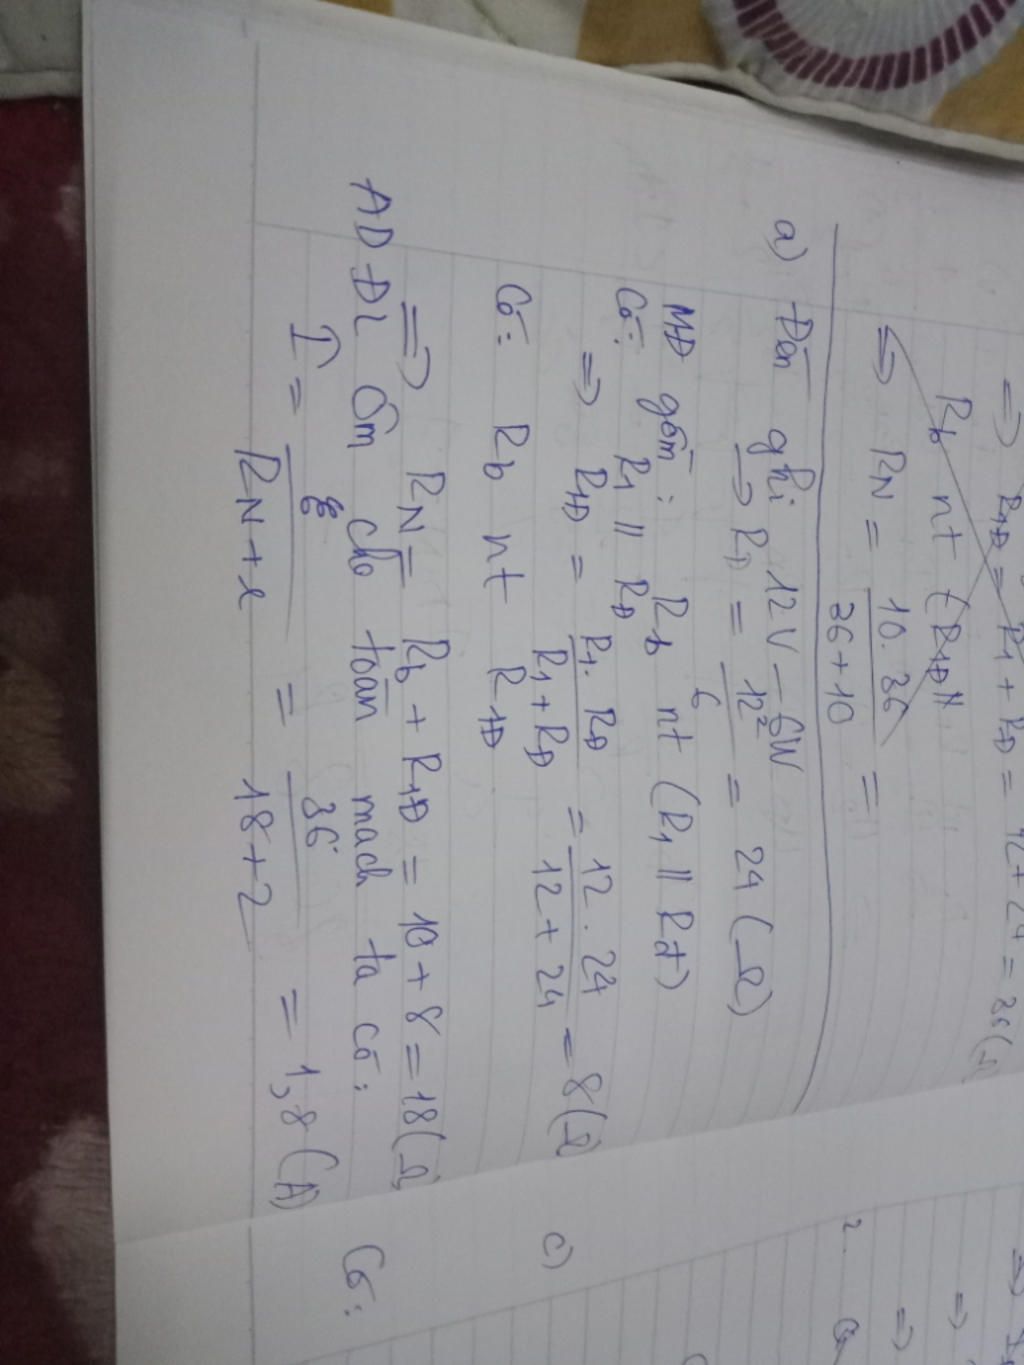 ⇒ R1Đ = R1 + RĐ = 12 + 24 = 36 (Ω)
Rb nt (R1ĐN
⇒ RN = 10 . 36 / 36 + 10 =
a) Đèn ghi 12V – 6W
→ RĐ = 12² / 6 = 24 (Ω)
MĐ gồm: Rb nt (R1 // Rđ)
Có: R1 // RĐ
⇒ R1Đ = R1 . RĐ / R1 + RĐ = 12 . 24 / 12 + 24 = 8 (Ω)
Có: Rb nt R1Đ
⇒ RN = Rb + R1Đ = 10 + 8 = 18 (Ω)
AD ĐL Ôm cho toàn mạch ta có:
I = ξ / RN + r = 36 / 18 + 2 = 1,8 (A)
2. a
c)
Có: